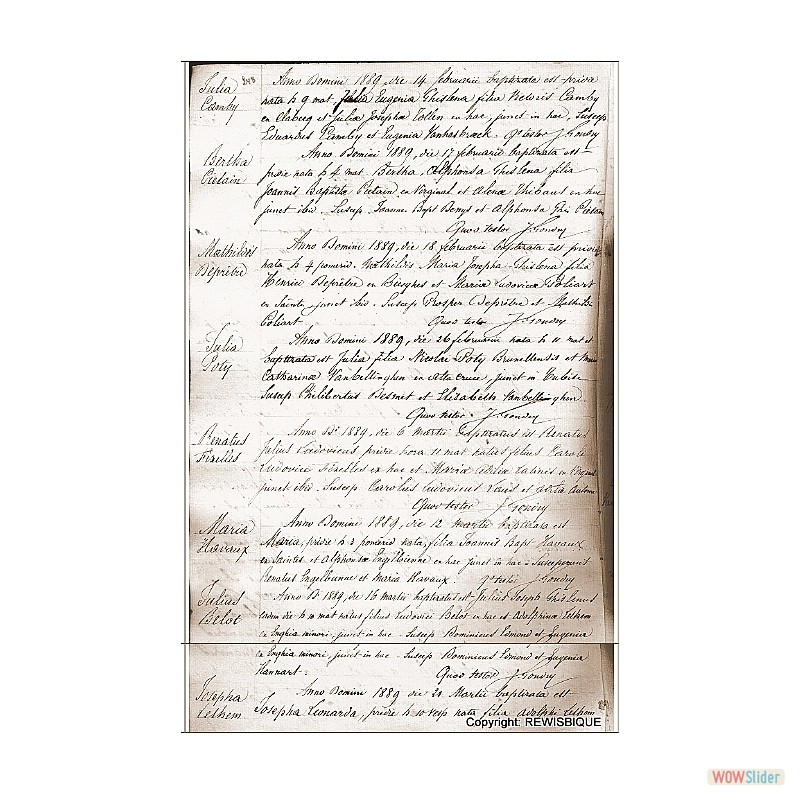 Julia
Camby
Anno Domini 1889, die 14 februarii baptizata est pridie
nata h 9 mat. Julia Eugenia Ghislena filia Camby
en Clabecq et Julia Josepha in hac, junct in hac. Suscep
Eduardus Camby et Eugenia Vanhasbroeck. q^d testor J. Gondry
Bertha
Piétain
Anno Domini 1889, die 17 februarii baptizata est
pridie nata h 4 mat. Bertha, Alphonsa Ghislena filia
Joannis Baptiste Piétain en Virginal et Thibaut en hac
junct ibid. Suscep Joannes Bapt et Alphonsa Piétain
Quod testor J. Gondry
Mathildis
Deprêtre
Anno Domini 1889, die 18 februarii baptizata est pridie
nata h 4 pomerid. Mathildis Maria Josepha Ghislena filia
Henrici Deprêtre en Bierghes et Maria Ludovica Coliart
en Saintes junct ibid. Suscep Prosper Deprêtre et Mathilde
Coliart. Quod testor J. Gondry
Julia
Poty
Anno Domini 1889, die 26 februarii nata h 11 mat et
baptizata est Julia filia Nicolai Poty Bruxellensis et
Catharina Vanbellinghen en alta cruce, junct in Tubise
Suscep Philibertus Desmet et Elisabeth Vanbellinghen
Quod testor. J. Gondry
Renatus
Fixelles
Anno D^i 1889, die 6 martii baptizatus est Renatus
Julius Ludovicus pridie hora 11 mat natus filius Caroli
Ludovici Fixelles ex hac et Maria
junct ibid. Suscep Carolus Ludovicus et
Quod testor J. Gondry
Maria
Havaux
Anno Domini 1889, die 12 martii baptizata est
Maria, pridie h 3 pomerid nata, filia Joannis Bapt Havaux
en Saintes et Alphonsa Engelbienne en hac junct in hac. Susceperunt
Renatus Engelbienne et Maria Havaux. q^d testor J. Gondry
Julius
Bélot
Anno D 1889, die 16 martii baptizatus est Julius Joseph Ghislenus
eodem die h 10 mat natus filius Ludovici Bélot en hac et Adelphina Leshem
en Enghia minori, junct in hac. Suscep Dominicus Edmond et Eugenia
en Enghia minori, junct in hac. Suscep Dominicus Edmond et Eugenia
Hannart. Quod testor J. Gondry
Josepha
Leshem
Anno Domini 1889 die 21 Martii baptizata est
Josepha Leonarda, pridie h 10 vesp nata filia Adolphi Leshem
Copyright: REWISBIQUE
WOWSlider